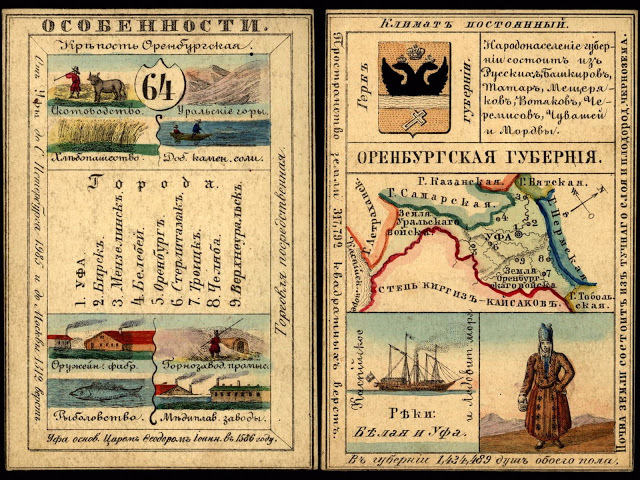 ОСОБЕННОСТИ.
Крѣпость Оренбургская.
64
Скотоводство.
Уральскіе горы.
Хлѣбопашество.
Доб. камен. соли.
Города.
1. УФА
2. Бирскъ.
3. Мензелинскъ.
4. Белебей.
5. Оренбургъ.
6. Стерлитамакъ.
7. Троицкъ.
8. Челяба.
9. Верхнеуральскъ.
Торговля посредственная.
Оружейн. фабр.
Горнозавод. промыс.
Рыболовство.
Мѣдиплав. заводы.
Уфа основ. Царемъ Ѳеодоромъ Іоанн. въ 1586 году.
Отъ Уфы до С. Петербурга 1985 и до Москвы 1312 верстъ
Климатъ постоянный.
Гербъ
губерніи.
Народонаселеніе губер-
ніи состоитъ изъ
Русскихъ, Башкировъ,
Татаръ, Мещеря-
ковъ, Вотяковъ, Че-
ремисовъ, Чувашей
и Мордвы.
ОРЕНБУРГСКАЯ ГУБЕРНІЯ.
Г. Казанская.
Г. Вятская.
Г. Самарская.
Г. Пермская.
Земля
Уральскаго
войска
Г. Астраханск.
Каспійск. море
УФА
Земля
Оренбург-
скаго войска
СТЕПЬ КИРГИЗЪ-КАЙСАКОВЪ.
Г. Тоболь-
ская.
Каспійское
и Ледовит. моря.
Рѣки:
Бѣлая и Уфа.
Въ губерніи 1,434,489 душъ обоего пола.
Пространство земли 317,792 квадратныхъ верстъ.
Почва земли состоитъ изъ тучнаго слоя и плодород. чернозема.